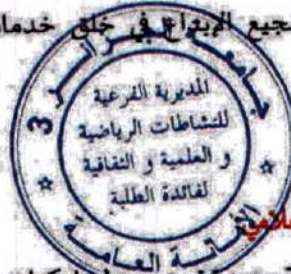 جيع الإبداع في خلق خدمات
جامعة الجزائر 3
المديرية الفرعية
للنشاطات الرياضية
و العلمية و الثقافية
لفائدة الطلبة
الأمانة العامة